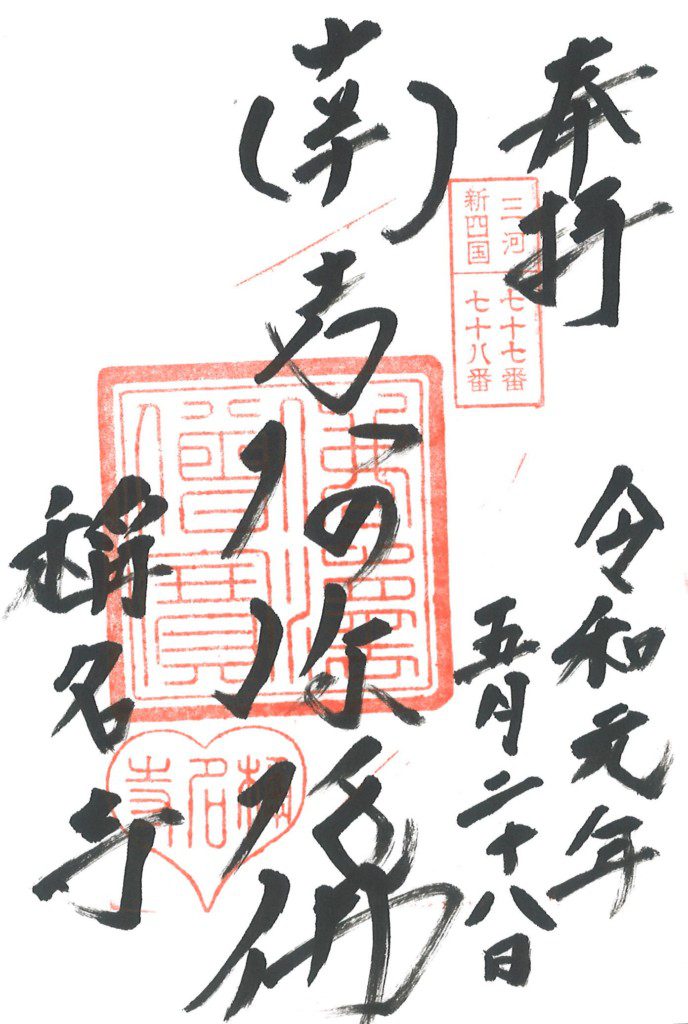 奉拝
三河 七十七番
新四国 七十八番
令和元年
五月二十八日
南無阿弥陀佛
佛法
僧寶
稱名寺
稱名寺